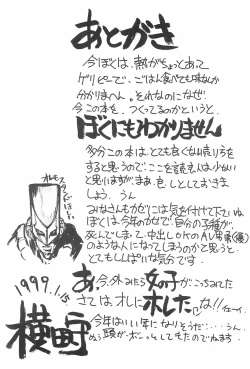 あとがき
今ぼくは、熱がちょっとあって
ゲリピーで、ごはん食べても味なんか
分かりまへん。それなのになぜ
今この本を、つくってるのかというと、
ぼくにもわかりません
多分この本は、とても良くない売りを
すると思うので、ここを読む人は少ない
と思いますがまあ、色々としておきま
しょう、うん
みなさんもかぜには気を付けて下さいね
ぼくは、今年のかぜで、自分の子種が
死んでしまって、中出しOKのAV男優(嘘)
のような人になってしまうのかと思うと、
とてもしんぱいな気分です。
あ、今、外みたら女の子がこっちみてた
さては、オレにホレたな!!イェーイ。
今年はいい年になりそうだ…うん。
頭がボーっとしてもたのでねます。
オレモ
スタンドほしい
1999.1.15
横町